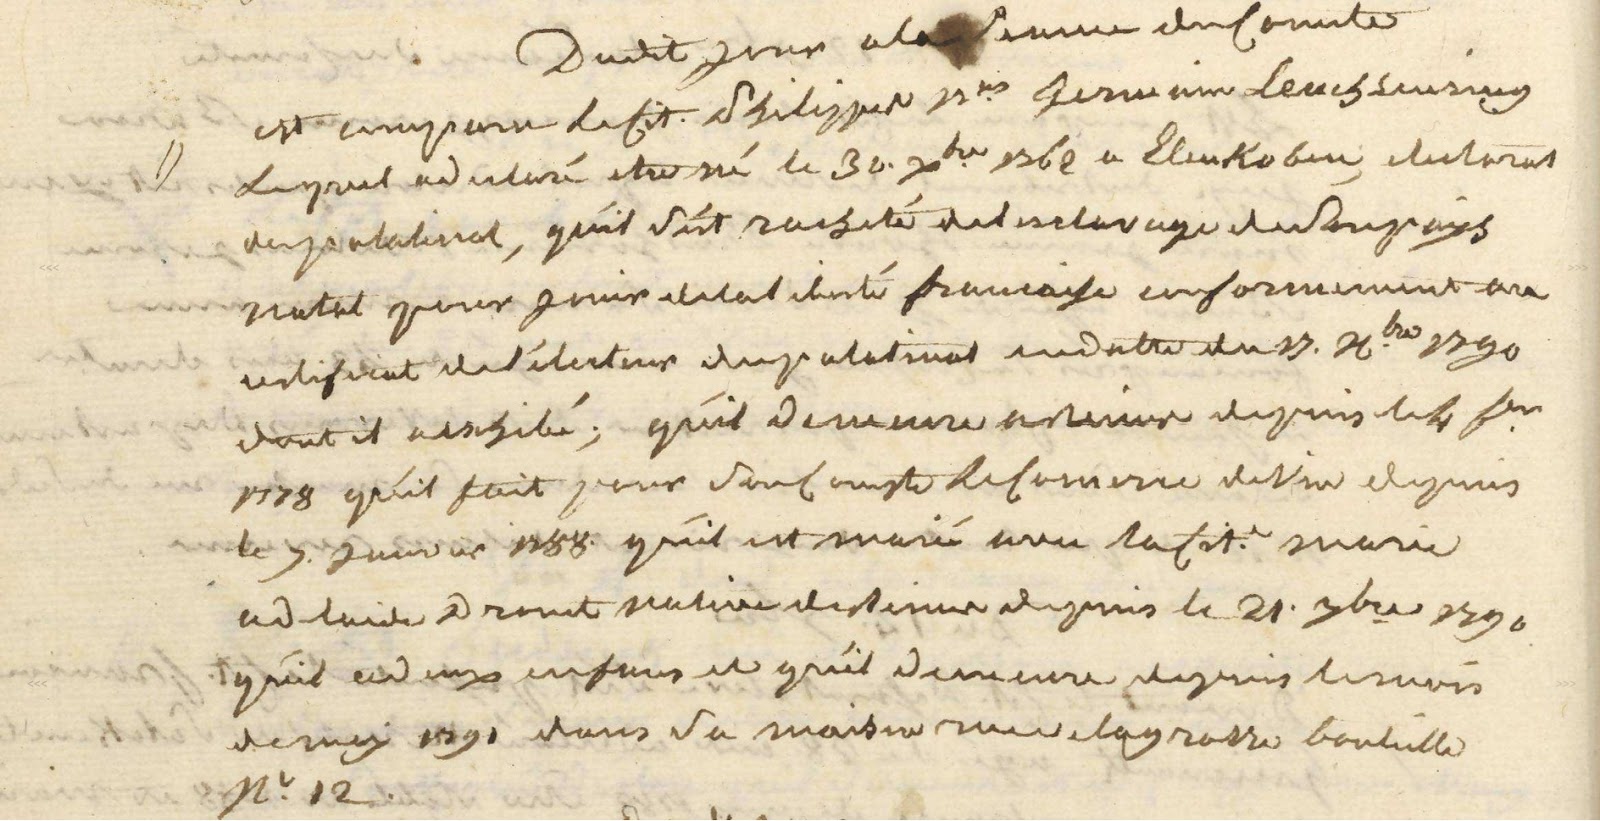 Dudit jour a la Seance du Comite
est comparu le Cit. Philippe frs Germain Leuchsenring
Lequel a declaré etre né le 30. xbre 1762 a Edenkoben, electorat
du palatinat, qu'il s'est racheté de l'esclavage de Son pays
natal pour jouir de la liberté francaise conformement au
certificat de l'électeur du palatinat en datte du 17. Xbre 1790
dont il a exhibé; qu'il demeure a Reims depuis le 4 fer
1778 qu'il fait pour Son Compte le Comerce de Vin depuis
le 7. Janvier 1788. qu'il est marié avec la Cit.e marie
adelaide Drouet native de Reims depuis le 21. 9bre 1790
qu'il a deux enfans et qu'il demeure depuis le mois
de may 1791 dans Sa maison rue de la grosse bouteille
N.o 12.